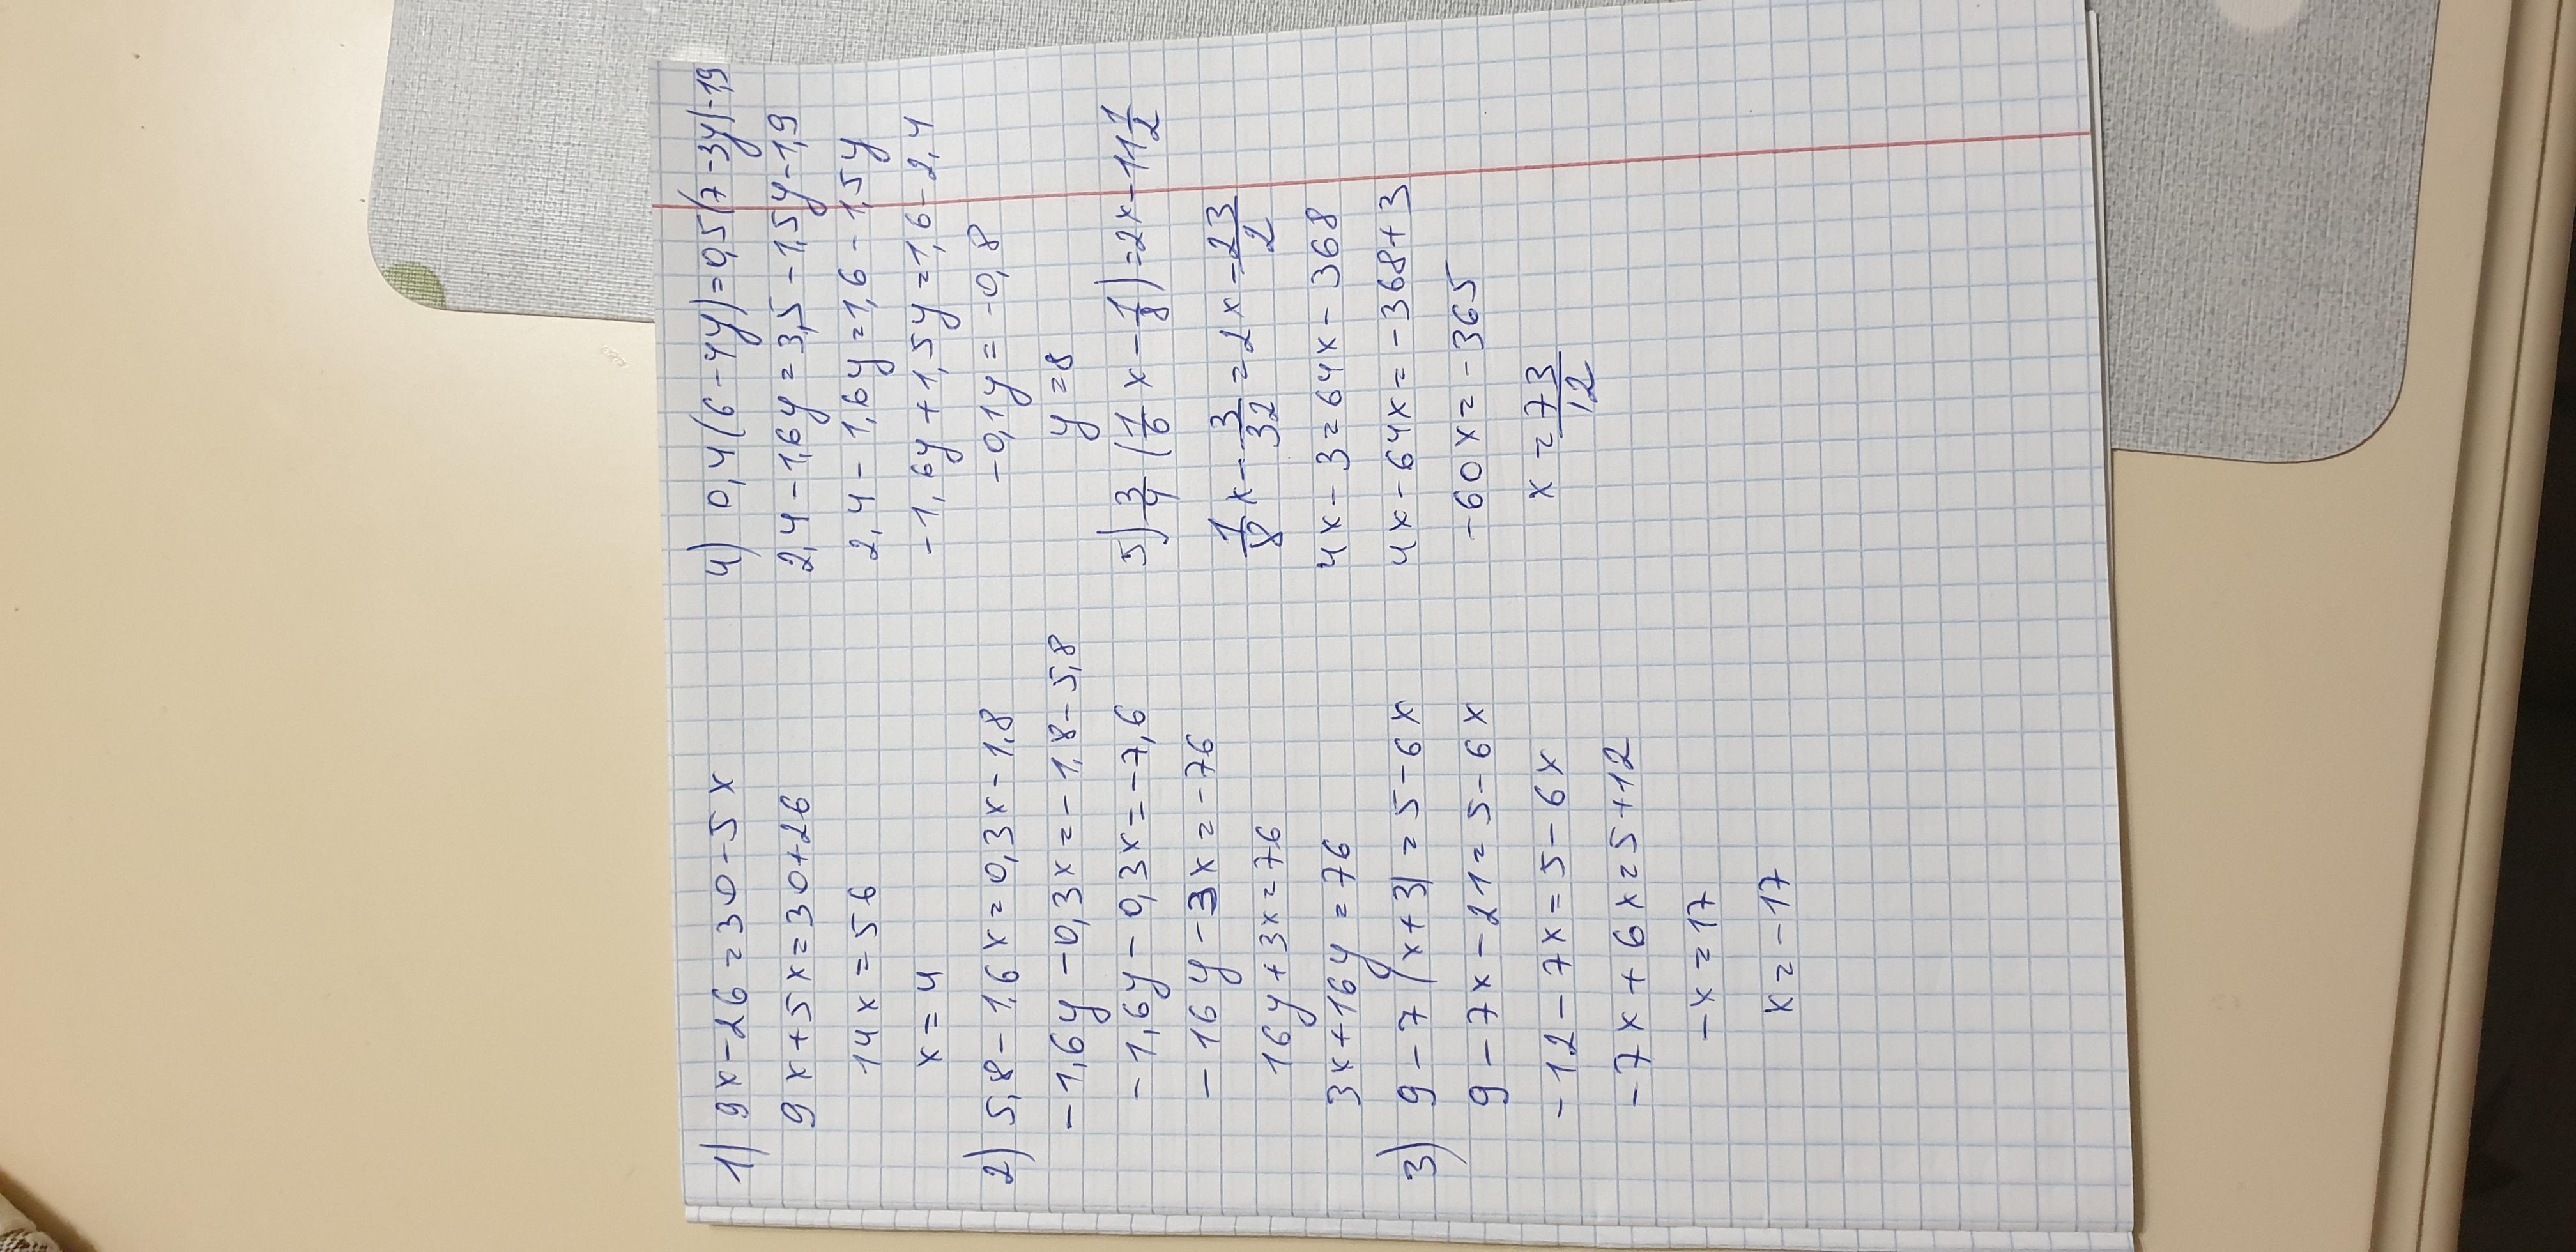 1) 9x-26=30-5x
9x+5x=30+26
14x=56
x=4
2) 5,8-1,6x=0,3x-1,8
-1,6y-0,3x=-1,8-5,8
-1,6y-0,3x=-7,6
-16y-3x=-76
16y+3x=76
3x+16y=76
3) 9-7(x+3)=5-6x
9-7x-21=5-6x
-12-7x=5-6x
-7x+6x=5+12
-x=17
x=-17
4) 0,4(6-4y)=0,5(7-3y)-1,9
2,4-1,6y=3,5-1,5y-1,9
2,4-1,6y=1,6-1,5y
-1,6y+1,5y=1,6-2,4
-0,1y=-0,8
y=8
5) 3/4(1/6x-1/8)=2x-11 1/2
1/8x-3/32=2x-23/2
4x-3=64x-368
4x-64x=-368+3
-60x=-365
x=73/12